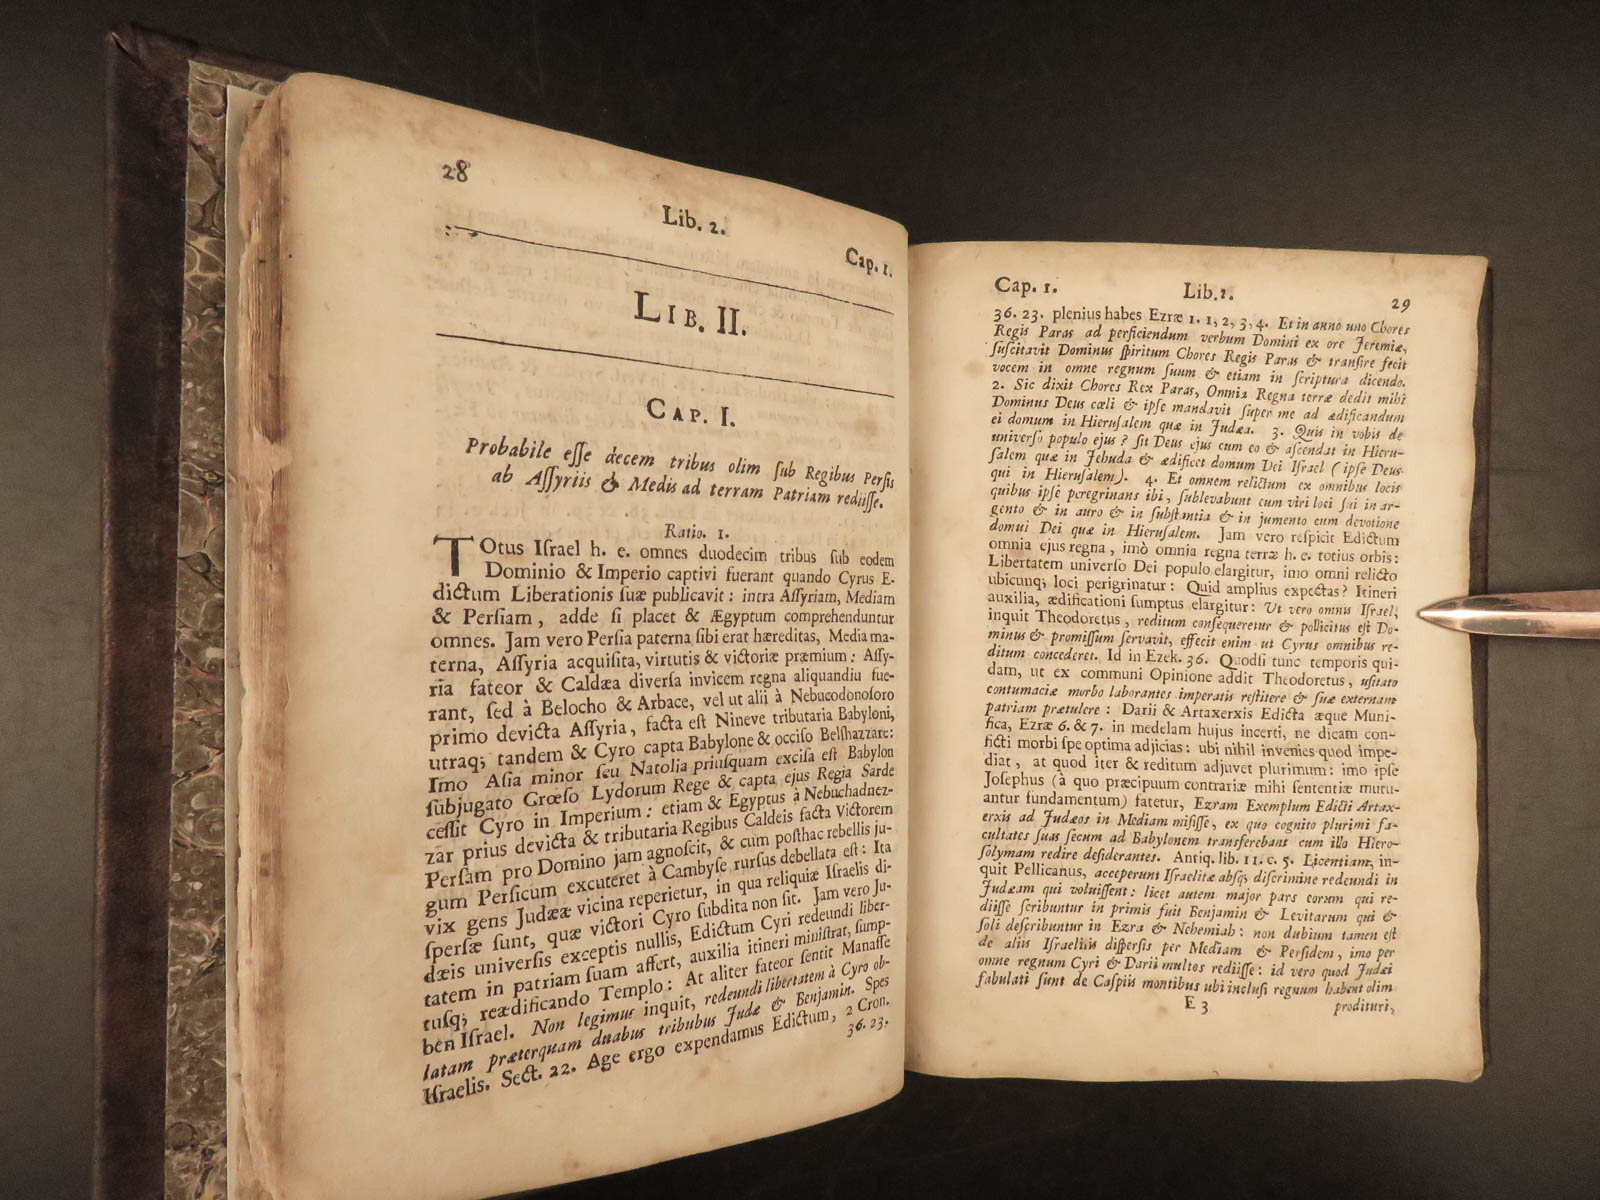 28
Lib. 2.
Cap. 1.
LIB. II.
CAP. I.
Probabile eſſe decem tribus olim ſub Regibus Perſis
ab Aſſyriis & Medis ad terram Patriam rediiſſe.
Ratio. 1.
TOtus Iſrael h. e. omnes duodecim tribus ſub eodem
Dominio & Imperio captivi fuerant quando Cyrus E-
dictum Liberationis ſuæ publicavit : intra Aſſyriam, Mediam
& Perſiam , adde ſi placet & Ægyptum comprehenduntur
omnes. Jam vero Perſia paterna ſibi erat hæreditas, Media ma-
terna, Aſſyria acquiſita, virtutis & victoriæ præmium : Aſſy-
ria fateor & Caldæa diverſa invicem regna aliquandiu fue-
rant, ſed à Belocho & Arbace, vel ut alii à Nebucodonoſoro
primo devicta Aſſyria, facta eſt Nineve tributaria Babyloni,
utraq; tandem & Cyro capta Babylone & occiſo Belſhazzare:
Imo Aſia minor ſeu Natolia priuſquam exciſa eſt Babylon
ſubjugato Crœſo Lydorum Rege & capta ejus Regia Sarde
ceſſit Cyro in Imperium : etiam & Egyptus à Nebuchadnez-
zar prius devicta & tributaria Regibus Caldeis facta Victorem
Perſam pro Domino jam agnoſcit, & cum poſthac rebellis ju-
gum Perſicum excuteret à Cambyſe rurſus debellata eſt : Ita
vix gens Judææ vicina reperietur, in qua reliquiæ Iſraelis di-
ſperſæ ſunt, quæ victori Cyro ſubdita non ſit. Jam vero Ju-
dæis univerſis exceptis nullis, Edictum Cyri redeundi liber-
tatem in patriam ſuam affert, auxilia itineri miniſtrat, ſump-
tuſq; reædificando Templo : At aliter fateor ſentit Manaſſe
ben Iſrael. Non legimus inquit, redeundi libertatem à Cyro ob-
latam præterquam duabus tribubus Judæ & Benjamin. Spes
Iſraelis. Sect. 22. Age ergo expendamus Edictum, 2 Cron.
36. 23.
Cap. 1.
Lib. 2.
29
36. 23. plenius habes Ezræ 1. 1, 2, 3, 4. Et in anno uno Chores
Regis Paras ad perficiendum verbum Domini ex ore Jeremiæ,
ſuſcitavit Dominus ſpiritum Chores Regis Paras & tranſire fecit
vocem in omne regnum ſuum & etiam in ſcriptura dicendo.
2. Sic dixit Chores Rex Paras, Omnia Regna terræ dedit mihi
Dominus Deus cœli & ipſe mandavit ſuper me ad ædificandum
ei domum in Hieruſalem quæ in Judæa. 3. Quis in vobis de
univerſo populo ejus ? ſit Deus ejus cum eo & aſcendat in Hieru-
ſalem quæ in Jehuda & ædificet domum Dei Iſrael ( ipſe Deus
qui in Hieruſalem ). 4. Et omnem relictum ex omnibus locis
quibus ipſe peregrinans ibi, ſublevabunt eum viri loci ſui in ar-
gento & in auro & in ſubſtantia & in jumento cum devotione
domui Dei quæ in Hieruſalem. Jam vero reſpicit Edictum
omnia ejus regna , imò omnia regna terræ h. e. totius orbis :
Libertatem univerſo Dei populo elargitur, imo omni relicto
ubicunq; loci perigrinatur : Quid amplius expectas ? Itineri
auxilia, ædificationi ſumptus elargitur : Ut vero omnis Iſrael,
inquit Theodoretus, reditum conſequeretur & pollicitus eſt Do-
minus & promiſſum ſervavit, effecit enim ut Cyrus omnibus re-
ditum concederet. Id in Ezek. 36. Quodſi tunc temporis qui-
dam, ut ex communi Opinione addit Theodoretus, uſitato
contumaciæ morbo laborantes imperatis reſtitere & ſuæ externam
patriam prætulere : Darii & Artaxerxis Edicta æque Muni-
fica, Ezræ 6. & 7. in medelam hujus incerti, ne dicam con-
ficti morbi ſpe optima adjicias : ubi nihil invenies quod impe-
diat , at quod iter & reditum adjuvet plurimum : imo ipſe
Joſephus (à quo præcipuum contrariæ mihi ſententiæ mutu-
antur fundamentum) fatetur, Ezram Exemplum Edicti Artax-
erxis ad Judæos in Mediam miſiſſe, ex quo cognito plurimi fa-
cultates ſuas ſecum ad Babylonem transferebant cum illo Hiero-
ſolymam redire deſiderantes. Antiq. lib. 11. c. 5. Licentiam, in-
quit Pellicanus, acceperunt Iſraelitæ abſq; diſcrimine redeundi in
Judæam qui voluiſſent : licet autem major pars eorum qui re-
diiſſe ſcribuntur in primis fuit Benjamin & Levitarum qui &
ſoli deſcribuntur in Ezra & Nehemiah : non dubium tamen eſt
de aliis Iſraelitis diſperſis per Mediam & Perſidem, imo per
omne regnum Cyri & Darii multos rediiſſe : id vero quod Judæi
fabulati ſunt de Caſpiis montibus ubi incluſi regnum habent olim
E 3
prodituri,